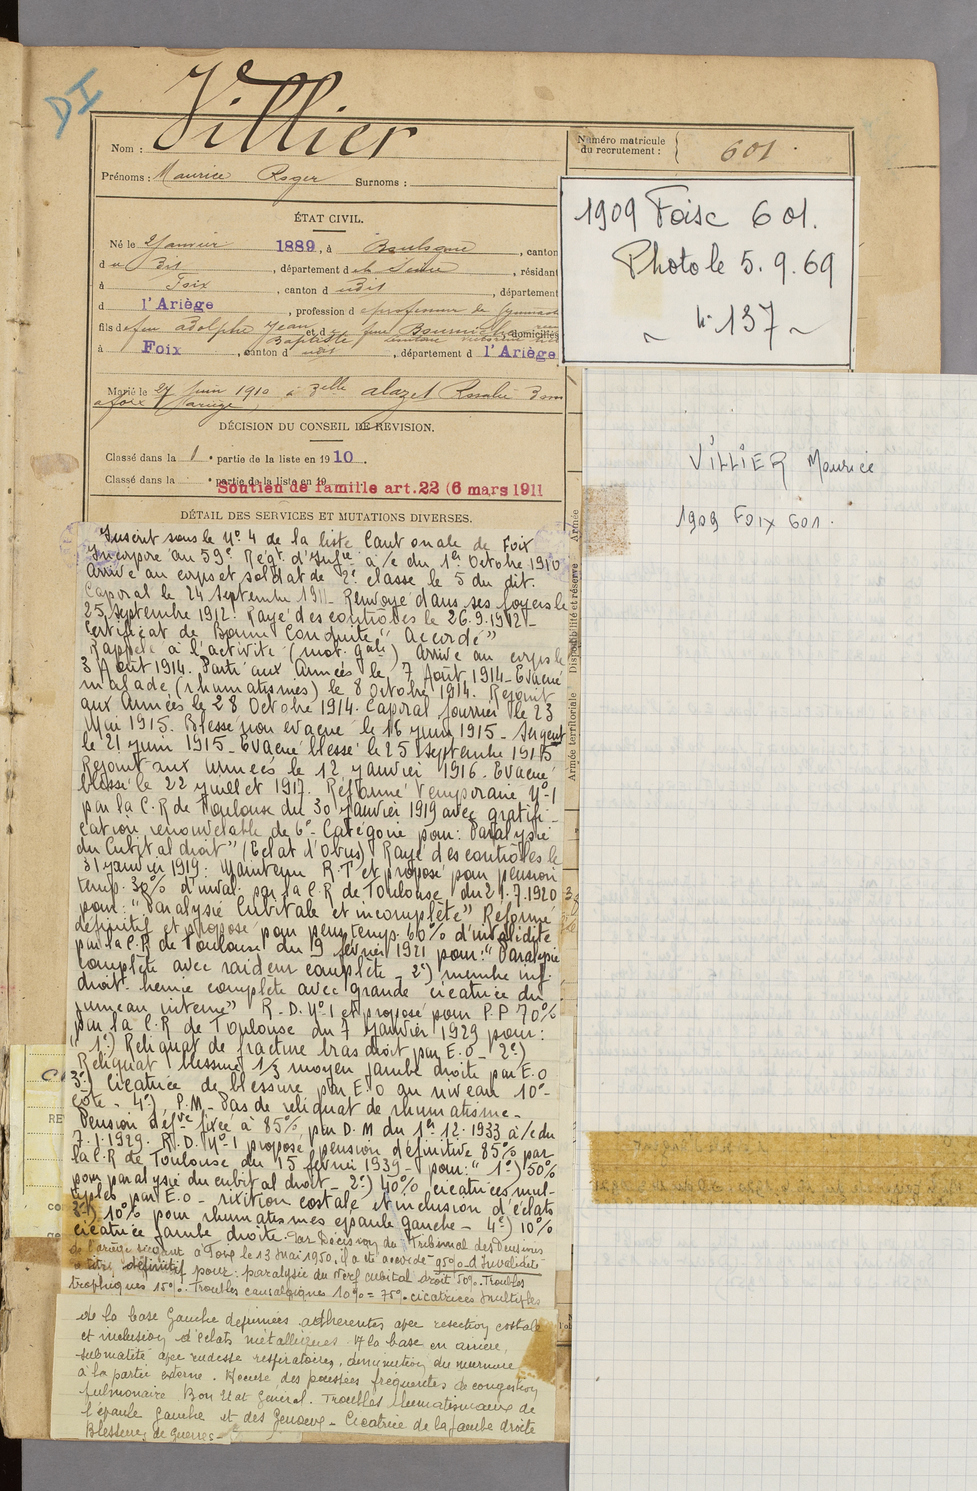 DI
Villier
Nom :
Numéro matricule
du recrutement :
601
Prénoms : Maurice Roger Surnoms :
ÉTAT CIVIL.
Né le 2 Janvier 1889, à Boulogne, canton
du dit, département de la Seine, résidant
à Foix, canton dudit, département
d l'Ariège, profession de professeur de gymnast
fils de feu Adolphe Jean Baptiste et de domiciliés
à Foix, canton dudit, département d l'Ariège
Marié le 27 Juin 1910 à Delle Alazet Rosalie Dom
à Foix Ariège
DÉCISION DU CONSEIL DE REVISION.
Classé dans la 1 e partie de la liste en 1910.
Classé dans la e partie de la liste en 19
Soutien de famille art. 22 (6 mars 1911
DÉTAIL DES SERVICES ET MUTATIONS DIVERSES.
Inscrit sous le Nº 4 de la liste Cantonale de Foix
Incorporé au 59e Régt. d'Infie à/c du 1er Octobre 1910
Arrivé au corps et soldat de 2e classe le 5 du dit.
Caporal le 24 Septembre 1911 - Renvoyé dans ses foyers le
25 Septembre 1912. Rayé des contrôles le 26.9.1912 -
Certificat de Bonne Conduite "Accordé"
Rappelé à l'activité (mob. gale) Arrivé au corps le
3 Août 1914. Parti aux Armées le 7 Août 1914 - Evacué
malade (rhumatismes) le 8 Octobre 1914. Rejoint
aux Armées le 28 Octobre 1914. Caporal fourrier le 23
Mai 1915. Blessé non evacué le 16 juin 1915 - Sergent
le 21 juin 1915 - Evacué blessé le 25 Septembre 1915
Rejoint aux Armées le 12 janvier 1916 - Evacué
blessé le 22 juillet 1917. Réformé Temporaire Nº 1
par la C.R de Toulouse du 30 Janvier 1919 avec gratifi-
cation renouvelable de 6e Catégorie pour : Paralysie
du Cubital droit" (Eclat d'Obus) Rayé des contrôles le
31 janvier 1919 : Maintenu R.T et proposé pour pension
temp. 30% d'inval. par la C.R de Toulouse du 21.7.1920
pour : "Paralysie Cubitale et incomplète" Réformé
définitif et proposé pour pens temp. 60% d'invalidité
par la C.R de Toulouse du 9 février 1921 pour : "Paralysie
complète avec raideur complète - 2e) membre inf.
droit hernie complète avec grande cicatrice du
jumeau interne" R.D. Nº 1 et proposé pour P.P 70%
par la C.R de Toulouse du 7 Janvier 1929 pour :
"1e) Reliquat de fracture bras droit par E.O - 2e)
Reliquat blessure 1/3 moyen jambe droite par E.O
3e) Cicatrice de blessure par E.O au niveau 10e
côte - 4e) P.M. Pas de reliquat de rhumatisme -
Pension défve fixée à 85% par D.M du 1er 12.1933 à/c du
7.1.1929. R.D. Nº 1 proposé pension définitive 85% par
la C.R de Toulouse du 15 février 1939 - pour : "1e) 50%
pour paralysie du cubital droit - 2e) 40% cicatrices mul-
tiples par E.O - costale et inclusion d'éclats
3e) 10% pour rhumatismes épaule gauche - 4e) 10%
cicatrice jambe droite. Par Décision du Tribunal des Pensions
de l'Ariège siégeant à Foix le 13 Mai 1950, il a été accordé 95% d'Invalidité
à titre définitif pour : paralysie du Nerf cubital droit 50%. Troubles
trophiques 15%. Troubles causalgiques 10% = 75%. cicatrices multiples
de la base Gauche déprimées adhérentes avec resection costale
et inclusion d'éclats métalliques. A la base en arrière,
submatité avec rudesse respiratoires, diminution du murmure
à la partie externe. Accuse des poussées fréquentes de congestion
pulmonaire. Bon Etat Général. Troubles rhumatismaux de
l'épaule Gauche et des Genoux - Cicatrice de la jambe droite
Blessures de guerres -
1909 Foix 601.
Photo le 5.9.69
n° 137
VILLIER Maurice
1909 FOIX 601.
Disponibilité et réserve
Armée
Armée territoriale